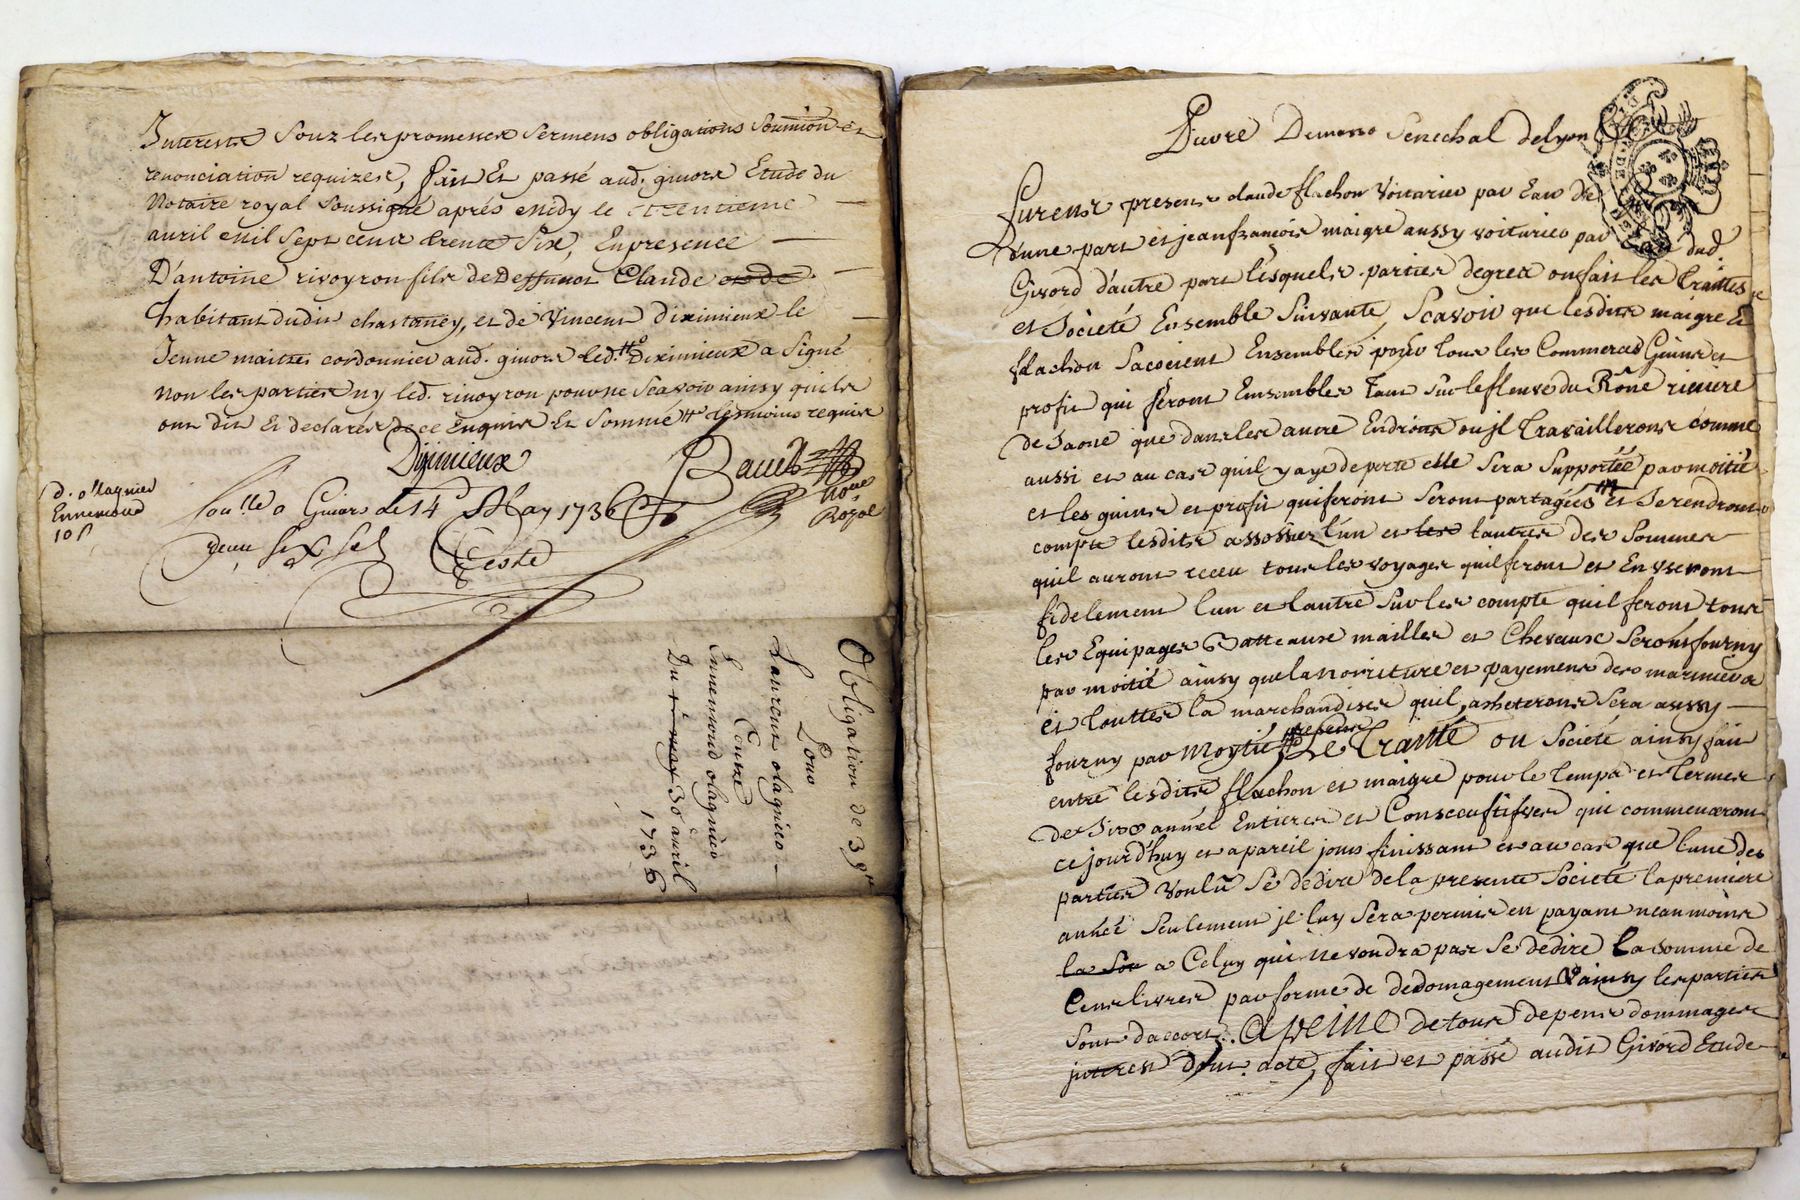 Interests souz les promesses sermens obligations soumission et
renonciation requizes, fait Et passé aud. givors Etude du
Notaire royal soussigné aprés midy le trentieme
avril mil sept cent trente six, En presence
D'antoine rivoyron fils de Deffunct Claude
habitant dudit chastaney, et de Vincent diximieux le
Jeune maitre cordonnier aud. givors led. diximieux a signé
non les parties ny led. rivoyron pour ne scavoir ainsy quils
ont dit Et declarés de ce Enquis Et sommé requis
Diximieux
Nore
Royal
d. ollagnier
Ennemond
10 s
a Givors le 14 May 1736
six sol
Teste
Obligation de 39 lt
Pour
Laurent olagnier
Contre
Ennemond olagnier
Du 30 avril
1736
Senechal de lyon
Furent presents claude flachon voiturier par Eau de
d'une part et jean françois maigre aussy voiturier par dud.
Givord d'autre part lesquels parties de gré a on fait les traittes
et Société Ensemble suivante, Scavoir que lesdits maigre Et
fflachon sacocient Ensembles pour tous les Commerces Gains et
profit qui feront Ensembles tant sur le fleuve du Rône riviere
de saone que dans les autre Endroits ou jl travailleront comme
aussi et au cas quil y aye de perte elle sera supportée par moitié
et les guains et profit qui feront seront partagées et se rendront
compte lesdits assossiez l'un et les l'autres des sommes
quil auront receu tous les voyages quil feront et En vseront
fidelement l'un et l'autre sur les compte quil feront tous
les Equipages Batteaux mailles et Chevaux seront fourny
par moitié ainsy que la noiriture et payement des mariniers
et touttes la marchandises quil acheterons sera aussy
fourny par moytié le traitté ou société ainsy fait
entre lesdits flachon et maigre pour le temps et termes
de six année Entieres et Conseccutifves qui commenceront
ce jourd'huy et a pareil jours finissant et au cas que l'une des
parties voulu se dedire de la presente societé la premiere
année seulement jl luy sera permis en payant neanmoins
la so a Celuy qui ne voudra pas se dedire la somme de
Cent livres par forme de dedomagement ainsy les parties
sont d'accort. a peine de tous depens dommages
jnterest dont acte, fait et passé audit Givord Etude